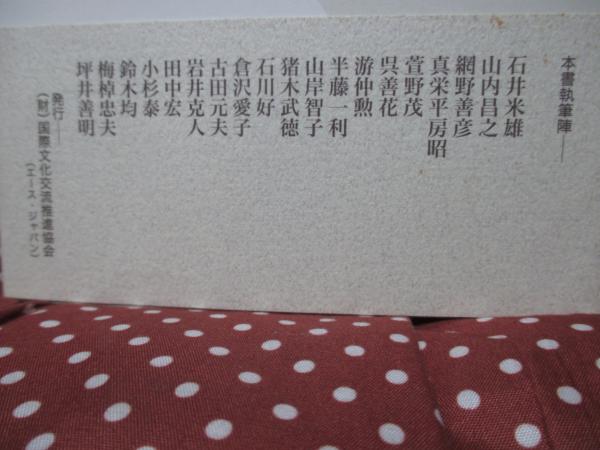 本書執筆陣──
石井米雄
山内昌之
網野善彦
真栄平房昭
萱野茂
呉善花
游仲勲
半藤一利
山岸智子
猪木武徳
石川好
倉沢愛子
古田元夫
岩井克人
田中宏
小杉泰
鈴木均
梅棹忠夫
坪井善明
発行──
(財)国際文化交流推進協会
(エース・ジャパン)